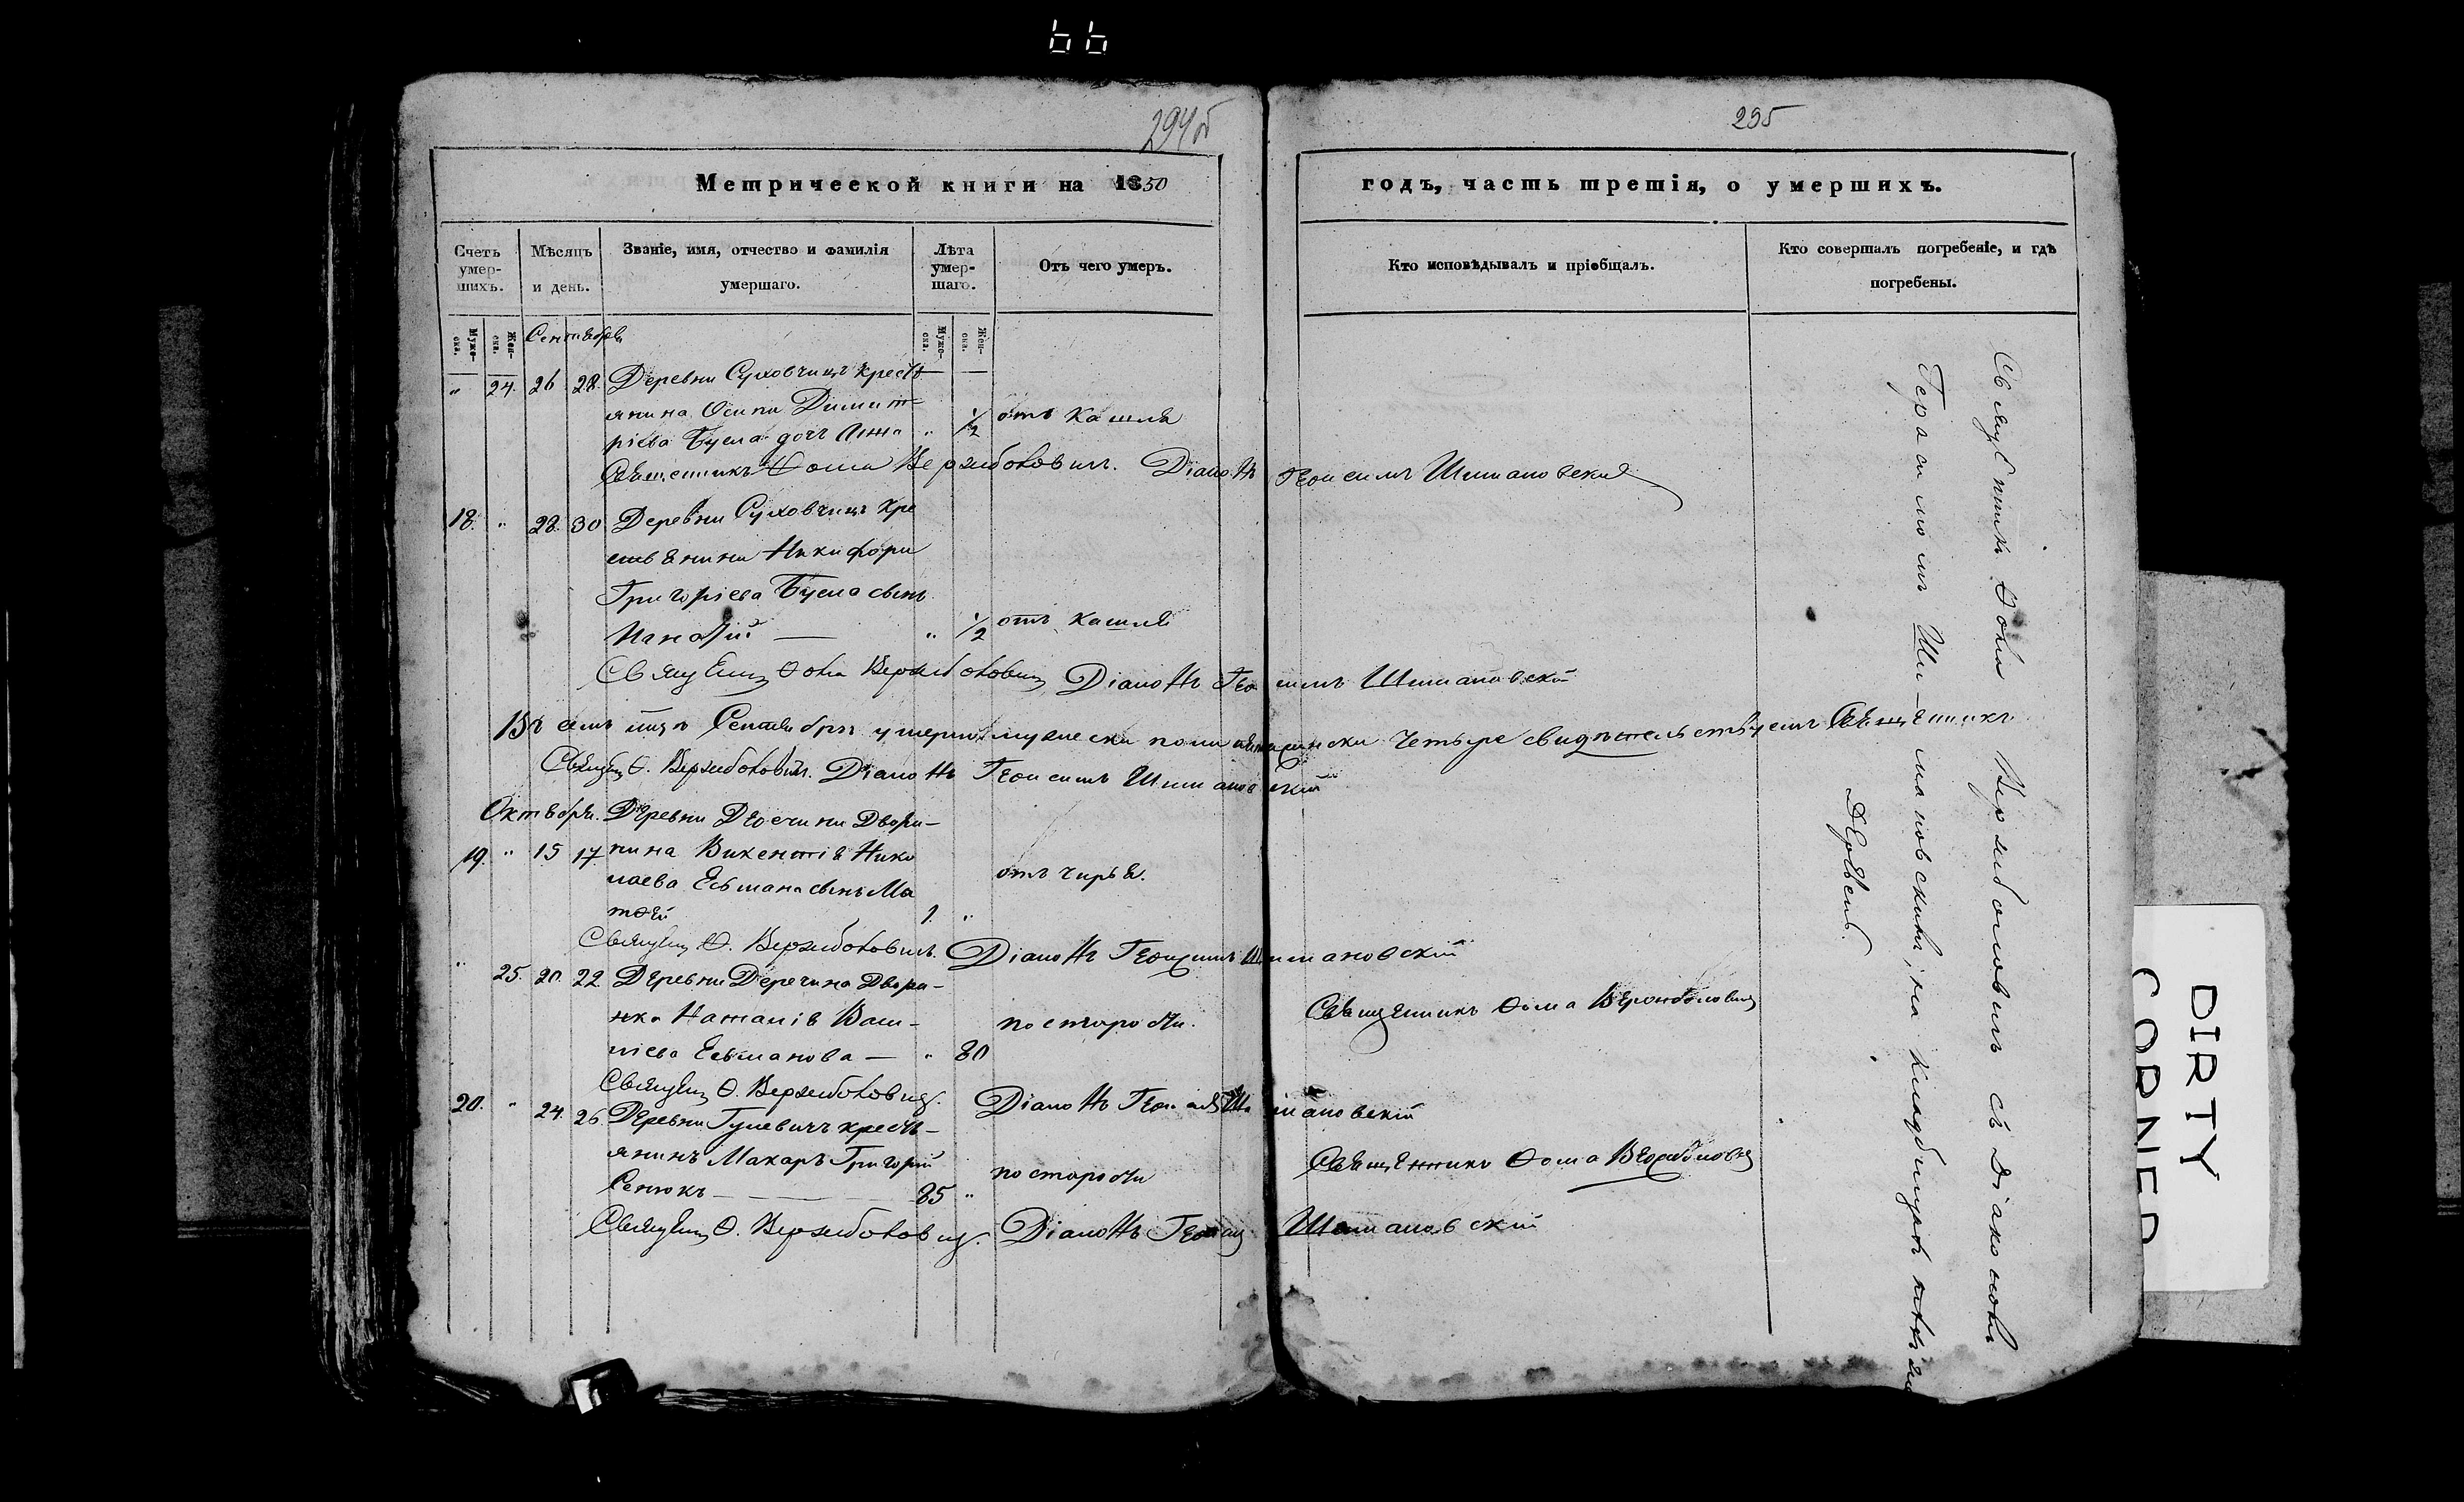 66
294об
295
Метрической книги на 1850
годъ, часть третія, о умершихъ.
Счетъ умер-шихъ.
Мѣсяцъ и день.
Званіе, имя, отчество и фамилія умершаго.
Лѣта умер-шаго.
Отъ чего умеръ.
Кто исповѣдывалъ и пріобщалъ.
Кто совершалъ погребеніе, и гдѣ погребены.
Муже-ска.
Жен-ска.
Муже-ска.
Жен-ска.
Сентябрь
" 24. 26 28. Деревни Суховчицъ кресть
янина Осипа Димит-
ріева Бусла дочь Анна " 1/2 отъ кашля
Священникъ Ѳома Вержболовичъ. Діаконъ Герасимъ Шимановскій
18. " 28. 30 Деревни Суховчицъ кре
стьянина Никифора
Григоріева Бусла сынъ
" 1/2 отъ кашля
Священ Ѳома Вержболович Діаконъ Герасимъ Шимановскій
Въ семъ мцѣ Сентябрѣ умерло мужеска пола женска четыре свидѣтельствуемъ Священникъ
Священ Ѳ. Вержболовичъ. Діаконъ Герасимъ Шимановскій
Октября. Деревни Дворя-
19. " 15 17 нина Викентія Нико
лаева Есьмана сынъ Ма
тѳей 1. " отъ чирья.
Священ Ѳ. Вержболовичъ. Діаконъ Герасимъ Шимановскій
" 25. 20. 22 Деревни Деречина Дворя-
нка Наталія Васи-
ліева Есьманова — " 80 по старости.
Священникъ Ѳома Вержболович
Священ Ѳ. Вержболович. Діаконъ Герасим Шимановскій
20. " 24. 26. Деревни Гулевичъ кресть-
янинъ Макаръ Григорій
Сенюкъ — 85 " по старости
Священникъ Ѳома Вержболович
Священ Ѳ. Вержболович. Діаконъ Герасим Шимановскій
Священникъ Ѳома Вержболовичъ съ Діакономъ
Герасимомъ Шимановскимъ, на кладбищахъ
Деревень.
DIRTY
CORNER